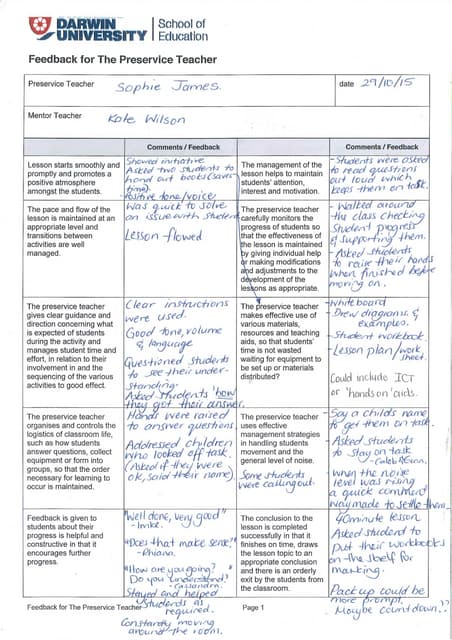 CHARLES DARWIN UNIVERSITY
School of
Education
Feedback for The Preservice Teacher
Preservice Teacher
Sophie James.
date 29/10/15
Mentor Teacher
Kate Wilson
Comments / Feedback
Comments / Feedback
Lesson starts smoothly and
promptly and promotes a
positive atmosphere
amongst the students.
Showed initiative
Asked two students to
hand out books (saves
time)
Positive tone/voice
The management of the
lesson helps to maintain
students' attention,
interest and motivation.
- Students were asked
to read questions
out loud which
keeps them on task.
The pace and flow of the
lesson is maintained at an
appropriate level and
transitions between
activities are well
managed.
Was quick to solve
an issue with student
Lesson flowed
The preservice teacher
carefully monitors the
progress of students so
that the effectiveness of
the lesson is maintained
by giving individual help
or making modifications
and adjustments to the
development of the
lessons as appropriate.
- Walked around
the class checking
student progress
& supporting them.
- Asked students
to raise their hands
when finished before
moving on.
The preservice teacher
gives clear guidance and
direction concerning what
is expected of students
during the activity and
manages student time and
effort, in relation to their
involvement in and the
sequencing of the various
activities to good effect.
Clear instructions
were used.
Good tone, volume
& language
Questioned students
to see their under-
standing.
Asked students 'how
they got their answer.
The preservice teacher
makes effective use of
various materials,
resources and teaching
aids, so that students'
time is not wasted
waiting for equipment to
be set up or materials
distributed?
- Whiteboard
- Drew diagrams &
examples.
- Student workbook
- Lesson plan/work
sheet.
Could include ICT
or 'hands on' aids.
The preservice teacher
organises and controls the
logistics of classroom life,
such as how students
answer questions, collect
equipment or form into
groups, so that the order
necessary for learning to
occur is maintained.
Hands were raised
to answer questions.
Addressed children
who looked off task.
(Asked if they were
ok, said their name)
The preservice teacher
uses effective
management strategies
in handling students
movement and the
general level of noise.
Some students
were calling out.
- Say a childs name
to get them on task.
- Asked students
to stay on task
- When the noise
level was rising
a quick comment
was made to settle them
Feedback is given to
students about their
progress is helpful and
constructive in that it
encourages further
progress.
"Well done, very good"
"Does that make sense?"
"How are you going?
Do you understand?"
- Cassandra.
Stayed and helped
students as
required.
Constantly moving
around the room.
The conclusion to the
lesson is completed
successfully in that it
finishes on time, draws
the lesson topic to an
appropriate conclusion
and there is an orderly
exit by the students from
the classroom.
40 minute lesson
Asked student to
put their workbooks
on the shelf for
marking.
Pack up could be
more prompt
Maybe countdown??
Feedback for The Preservice Teacher
Page 1